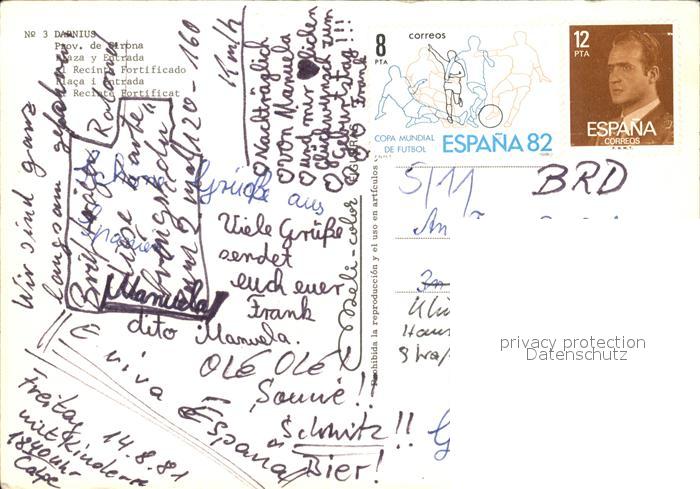 Nº 3 DARNIUS
Prov. de Girona
Plaza y Entrada
al Recinto Fortificado
Plaça i Entrada
al Recinte Fortificat
Wir sind ganz
langsam gefahren
120-160
Km/h
Roland
diese Karte
Manuela
Nachträglich
von Manuela
und mir
Glückwunsch zum
Geburtstag!!!
Frank
Schöne Grüße aus
Spanien
Viele Grüße
sendet
euch euer
Frank
dito Manuela.
OLÉ OLÉ!
Sonne!
E viva España
Schwitz!!
Bier!
Freitag 14.8.81
mit Kindern
1840 Uhr
Calpe
Prohibida la reproducción y el uso en artículos
8
PTA
correos
COPA MUNDIAL
DE FUTBOL
ESPAÑA 82
12
PTA
ESPAÑA
CORREOS
5/11
BRD
An
privacy protection
Datenschutz